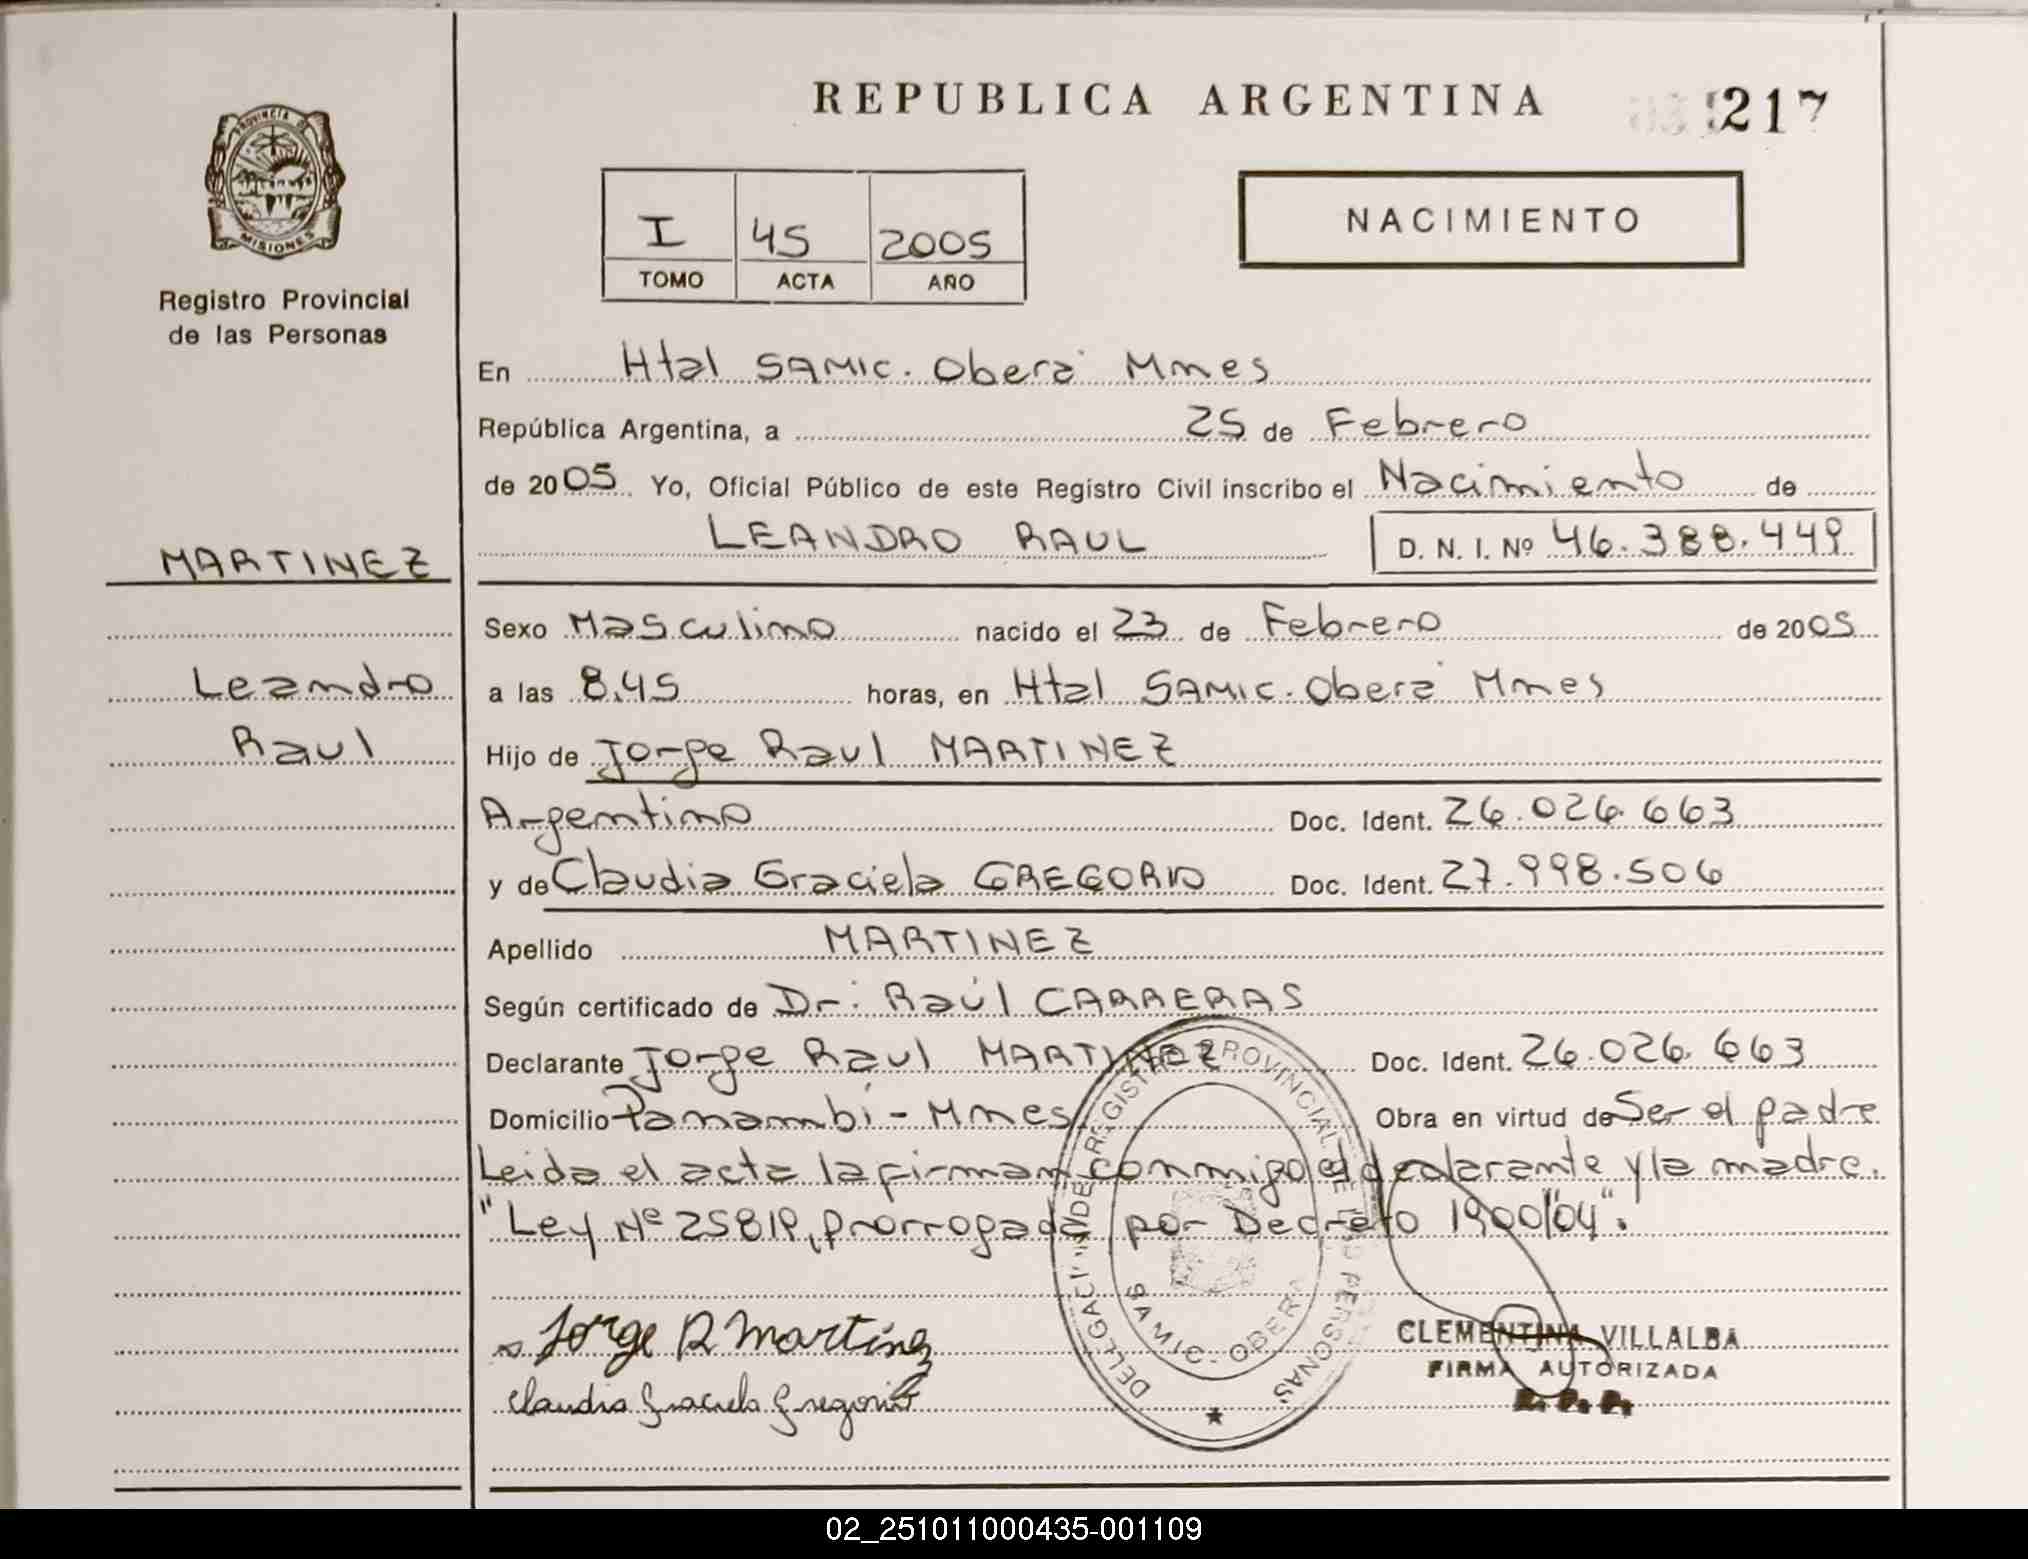 REPUBLICA ARGENTINA
217
PROVINCIA DE
MISIONES
Registro Provincial
de las Personas
I 45 2005
TOMO ACTA AÑO
NACIMIENTO
En Htal SAMIC. Oberá Mnes
República Argentina, a 25 de Febrero
de 2005. Yo, Oficial Público de este Registro Civil inscribo el Nacimiento de
LEANDRO RAUL D. N. I. Nº 46.388.449
MARTINEZ
Leandro
Raul
Sexo Masculino nacido el 23 de Febrero de 2005
a las 8.45 horas, en Htal SAMIC. Oberá Mnes
Hijo de Jorge Raul MARTINEZ
Argentino Doc. Ident. 26.026.663
y de Claudia Graciela GREGORIO Doc. Ident. 27.998.506
Apellido MARTINEZ
Según certificado de Dr: Raúl CARRERAS
Declarante Jorge Raul MARTINEZ Doc. Ident. 26.026.663
Domicilio Panambí - Mnes Obra en virtud de Ser el padre
Leida el acta la firman conmigo el declarante y la madre.
"Ley Nº 25819, prorrogada por Decreto 1900/04".
Jorge R Martínez
Claudia Graciela Gregorio
REGISTRO PROVINCIAL DE LAS PERSONAS
SAMIC - OBERA
CLEMENTINA VILLALBA
FIRMA AUTORIZADA
R. P. P.
02_251011000435-001109